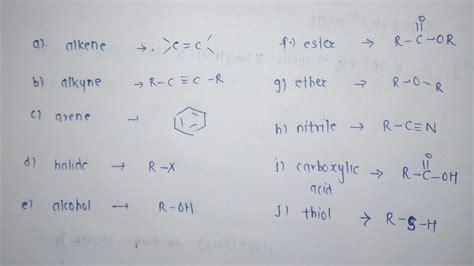 a) alkene → >C=C<
b) alkyne → R-C≡C-R
c) arene →
d) halide → R-X
e) alcohol → R-OH
f.) ester → R-C-OR
O
g) ether → R-O-R
h) nitrile → R-C≡N
i) carboxylic acid → R-C-OH
O
j) thiol → R-S-H